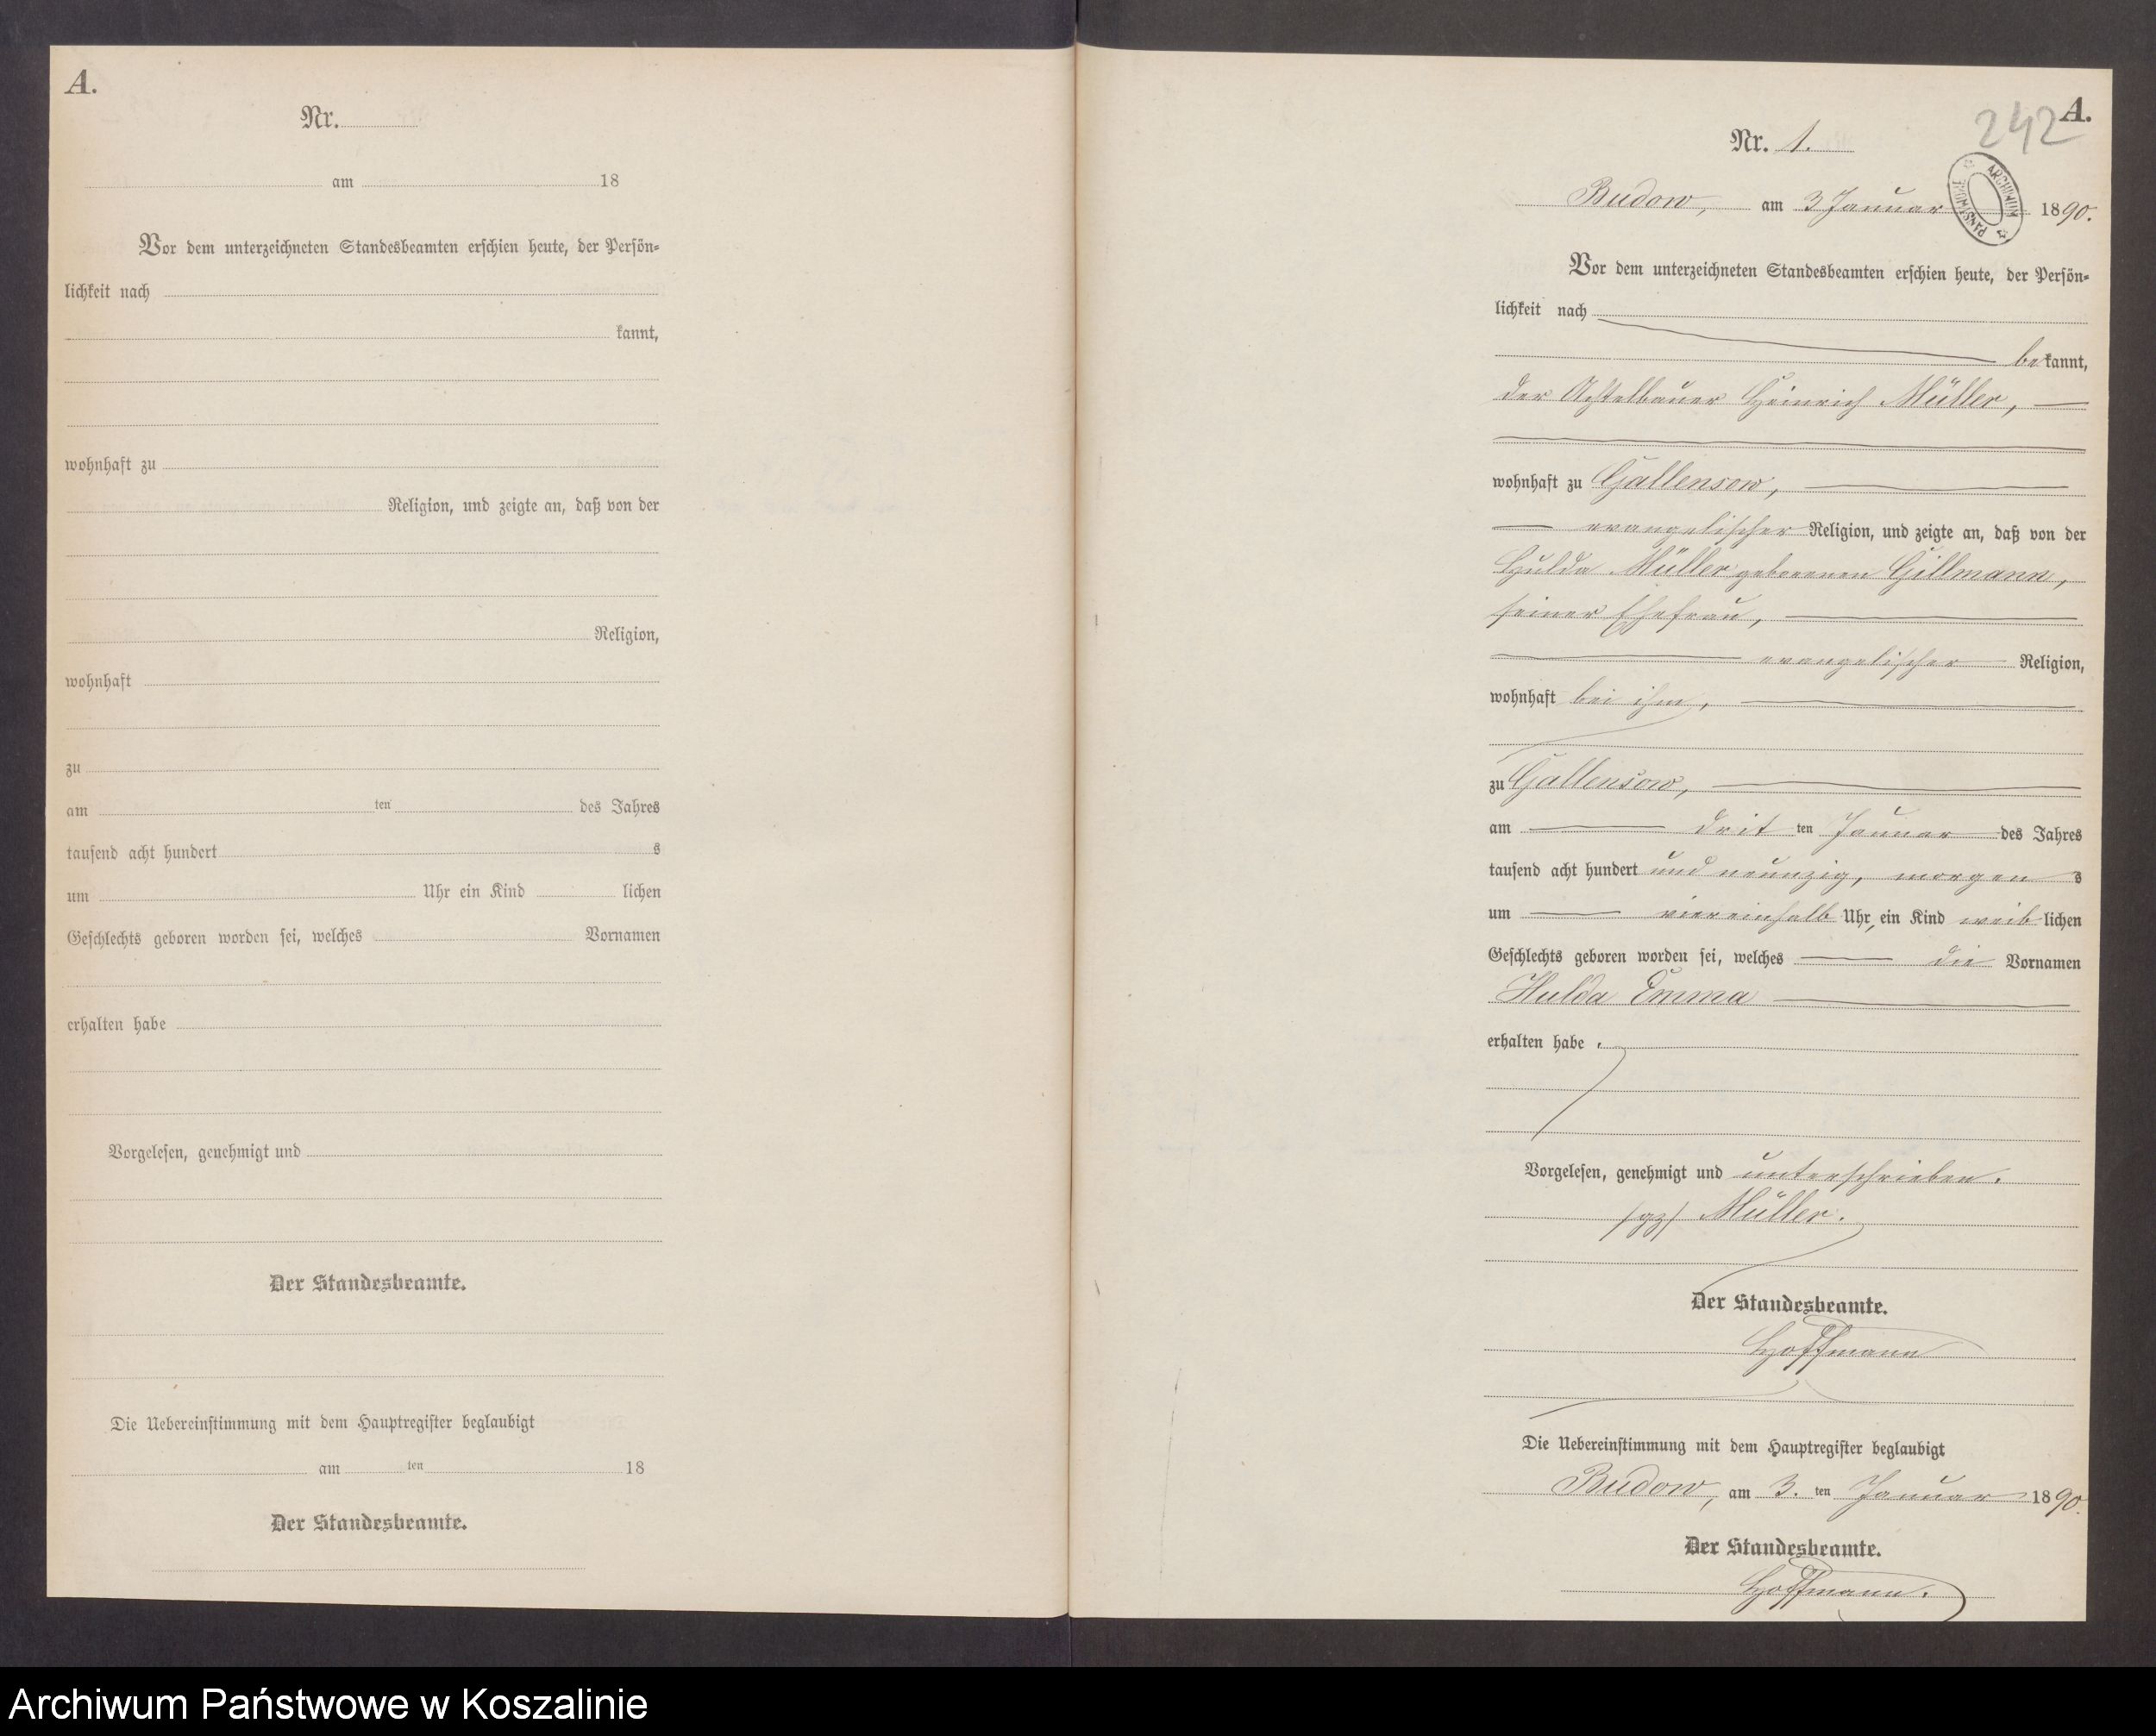 A.
Nr.
am 18
Vor dem unterzeichneten Standesbeamten erschien heute, der Persön=
lichkeit nach
kannt,
wohnhaft zu
Religion, und zeigte an, daß von der
Religion,
wohnhaft
zu
am ten des Jahres
tausend acht hundert s
um Uhr ein Kind lichen
Geschlechts geboren worden sei, welches Vornamen
erhalten habe
Vorgelesen, genehmigt und
Der Standesbeamte.
Die Uebereinstimmung mit dem Hauptregister beglaubigt
am ten 18
Der Standesbeamte.
A.
242
Nr. 1.
ARCHIWUM PAŃSTWOWE
Budow, am 3 Januar 1890.
Vor dem unterzeichneten Standesbeamten erschien heute, der Persön=
lichkeit nach
bekannt,
der Achtelbauer Heinrich Müller,
wohnhaft zu Gallensow,
evangelischer Religion, und zeigte an, daß von der
Hulda Müller geborenen Gillmann,
seiner Ehefrau,
evangelischer Religion,
wohnhaft bei ihm,
zu Gallensow,
am dritten Januar des Jahres
tausend acht hundert und neunzig, morgens
um viereinhalb Uhr, ein Kind weiblichen
Geschlechts geboren worden sei, welches die Vornamen
Hulda Emma
erhalten habe.
Vorgelesen, genehmigt und unterschrieben.
/gz/ Müller.
Der Standesbeamte.
Hoffmann
Die Uebereinstimmung mit dem Hauptregister beglaubigt
Budow, am 3. ten Januar 1890.
Der Standesbeamte.
Hoffmann.
Archiwum Państwowe w Koszalinie